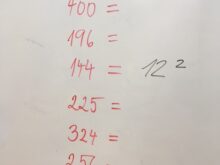 400 =
196 =
144 = 12²
225 =
324 =
256 =